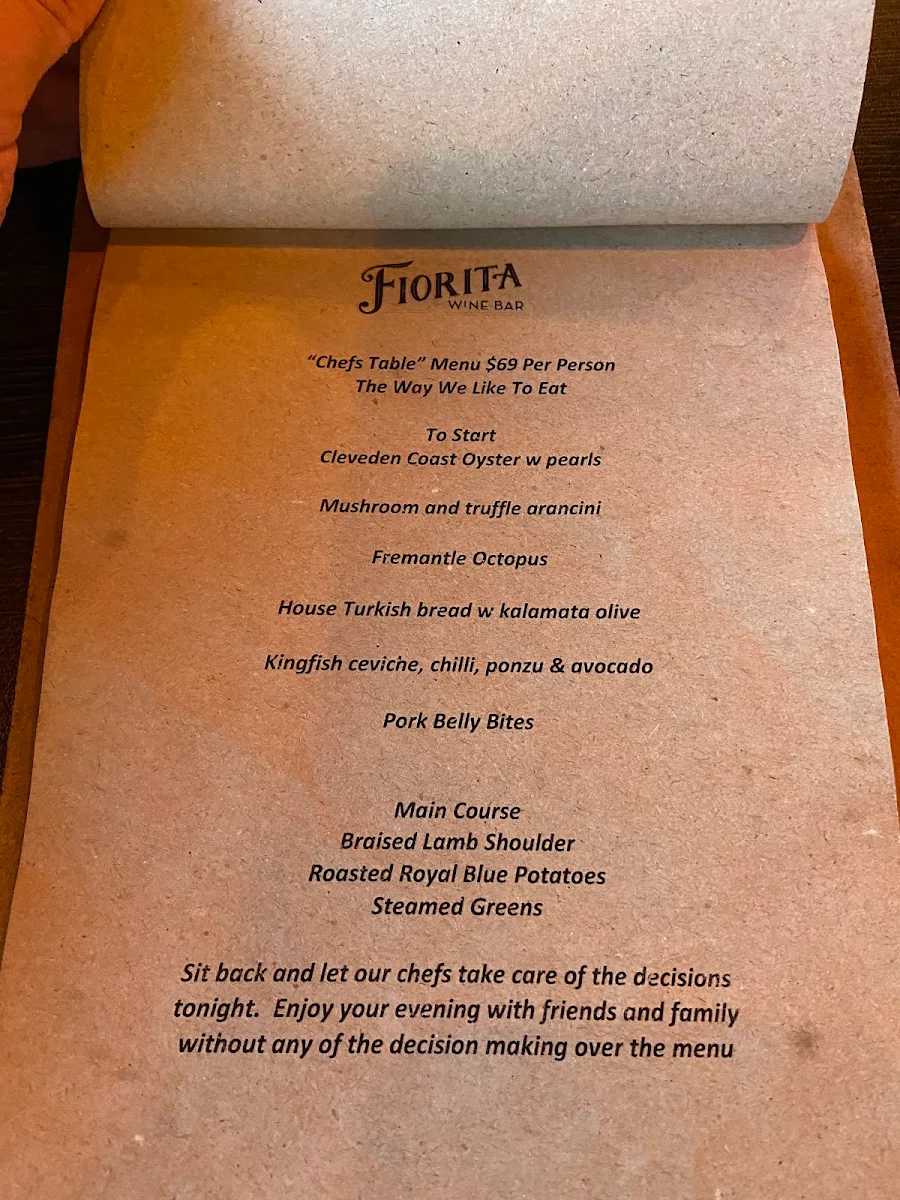 FIORITA
WINE BAR
“Chefs Table” Menu $69 Per Person
The Way We Like To Eat
To Start
Cleveden Coast Oyster w pearls
Mushroom and truffle arancini
Fremantle Octopus
House Turkish bread w kalamata olive
Kingfish ceviche, chilli, ponzu & avocado
Pork Belly Bites
Main Course
Braised Lamb Shoulder
Roasted Royal Blue Potatoes
Steamed Greens
Sit back and let our chefs take care of the decisions
tonight.  Enjoy your evening with friends and family
without any of the decision making over the menu